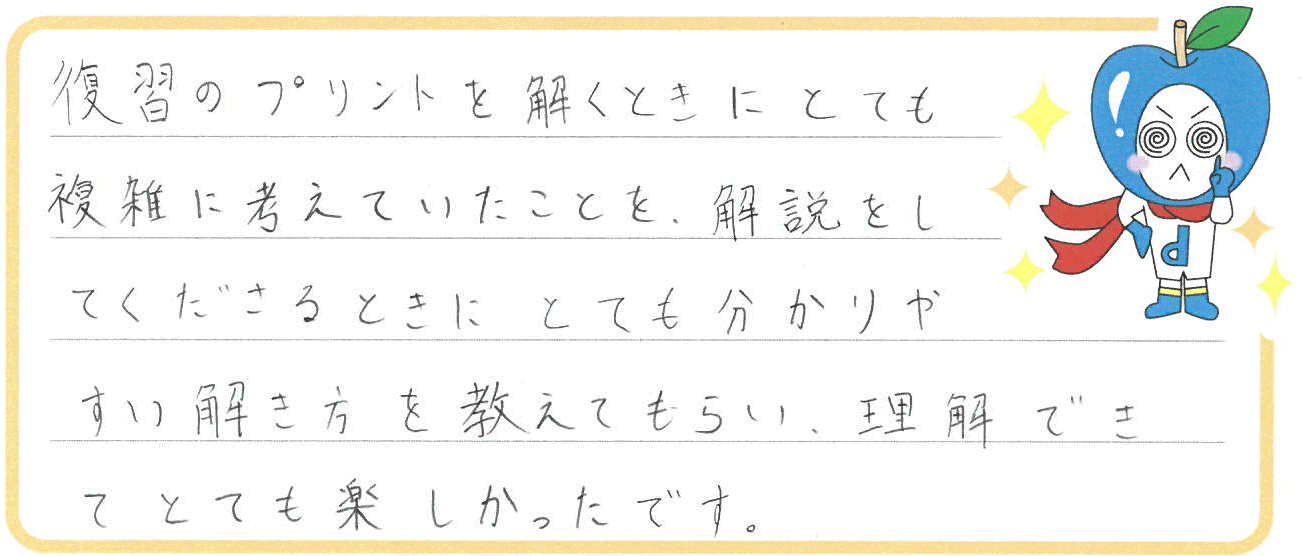 復習のプリントを解くときにとても
複雑に考えていたことを、解説をし
てくださるときにとても分かりや
すい解き方を教えてもらい、理解でき
てとても楽しかったです。
d